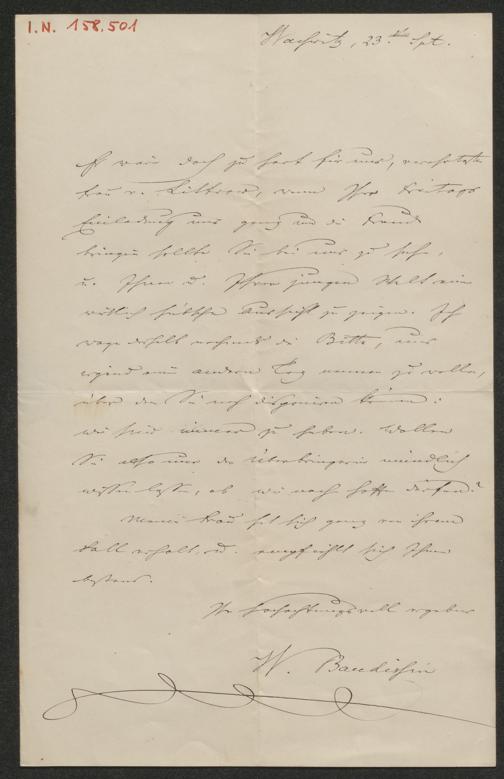 I.N. 158.501
Wachwitz, 23. Spt.
Es wäre doch zu hart für uns, verehrteste
Frau v. Littrow, wenn Ihre Freitags
Einladung uns ganz um die Freude
bringen sollte Sie bei uns zu sehn,
u. Ihnen u. Ihrer jungen Welt eine
wirklich hübsche Aussicht zu zeigen. Ich
wage deshalb nochmals die Bitte, uns
irgend einen andern Tag nennen zu wollen,
über den Sie noch disponiren können:
wir sind immer zu haben. Wollen
Sie also uns der Überbringerin mündlich
wissen lassen, ob wir noch hoffen dürfen?
Meine Frau hat sich ganz von ihrem
Fall erholt, u. empfiehlt sich Ihnen
bestens.
Ihr hochachtungsvoll ergebner
W. Baudissin